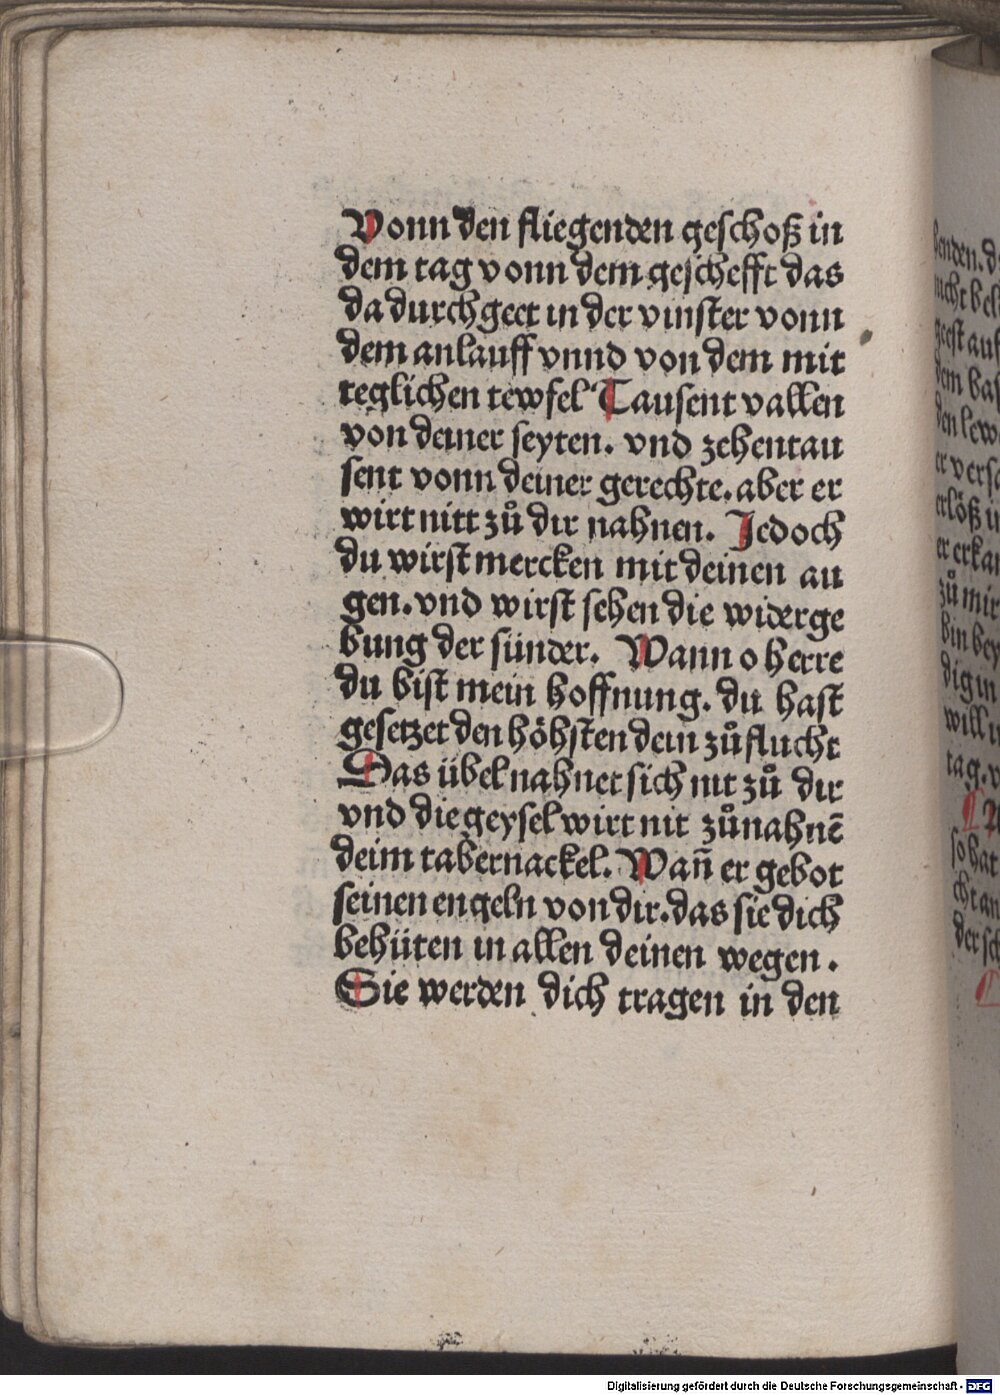 Vonn den fliegenden geschoß in
dem tag vonn dem geschefft das
da durchgeet in der vinster vonn
dem anlauff vnnd von dem mit
teglichen tewfel Tausent vallen
von deiner seyten. vnd zehentau
sent vonn deiner gerechte. aber er
wirt nitt zů dir nahnen. Jedoch
du wirst mercken mit deinen au
gen. vnd wirst sehen die widerge
bung der sünder. Wann o herre
du bist mein hoffnung. du hast
gesetzet den höhsten dein zůflucht
Das übel nahnet sich nit zů dir
vnd die geysel wirt nit zůnahnē
deim tabernackel. Wan̄ er gebot
seinen engeln von dir. das sie dich
behüten in allen deinen wegen.
Sie werden dich tragen in den
Digitalisierung gefördert durch die Deutsche Forschungsgemeinschaft - DFG